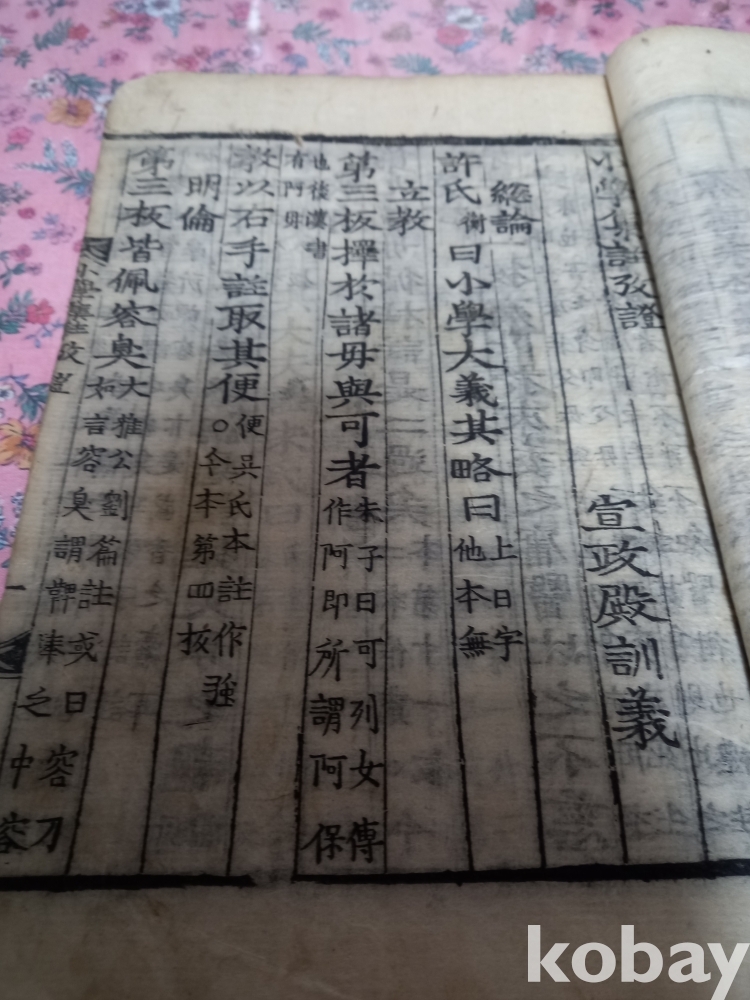 小學集註攷證
宣政殿訓義
總論
許氏衡曰小學大義其略曰上日字他本無
立敎
第三板擇於諸母與可者朱子曰可列女傳作阿即所謂阿保
也後漢書有阿母
敎以右手註取其便便吳氏本註作强○今本第四板
明倫
第三板皆佩容臭大雅公劉篇註或曰容刀如言容臭謂鞞琫之中容
小學集註攷證
一
kobay